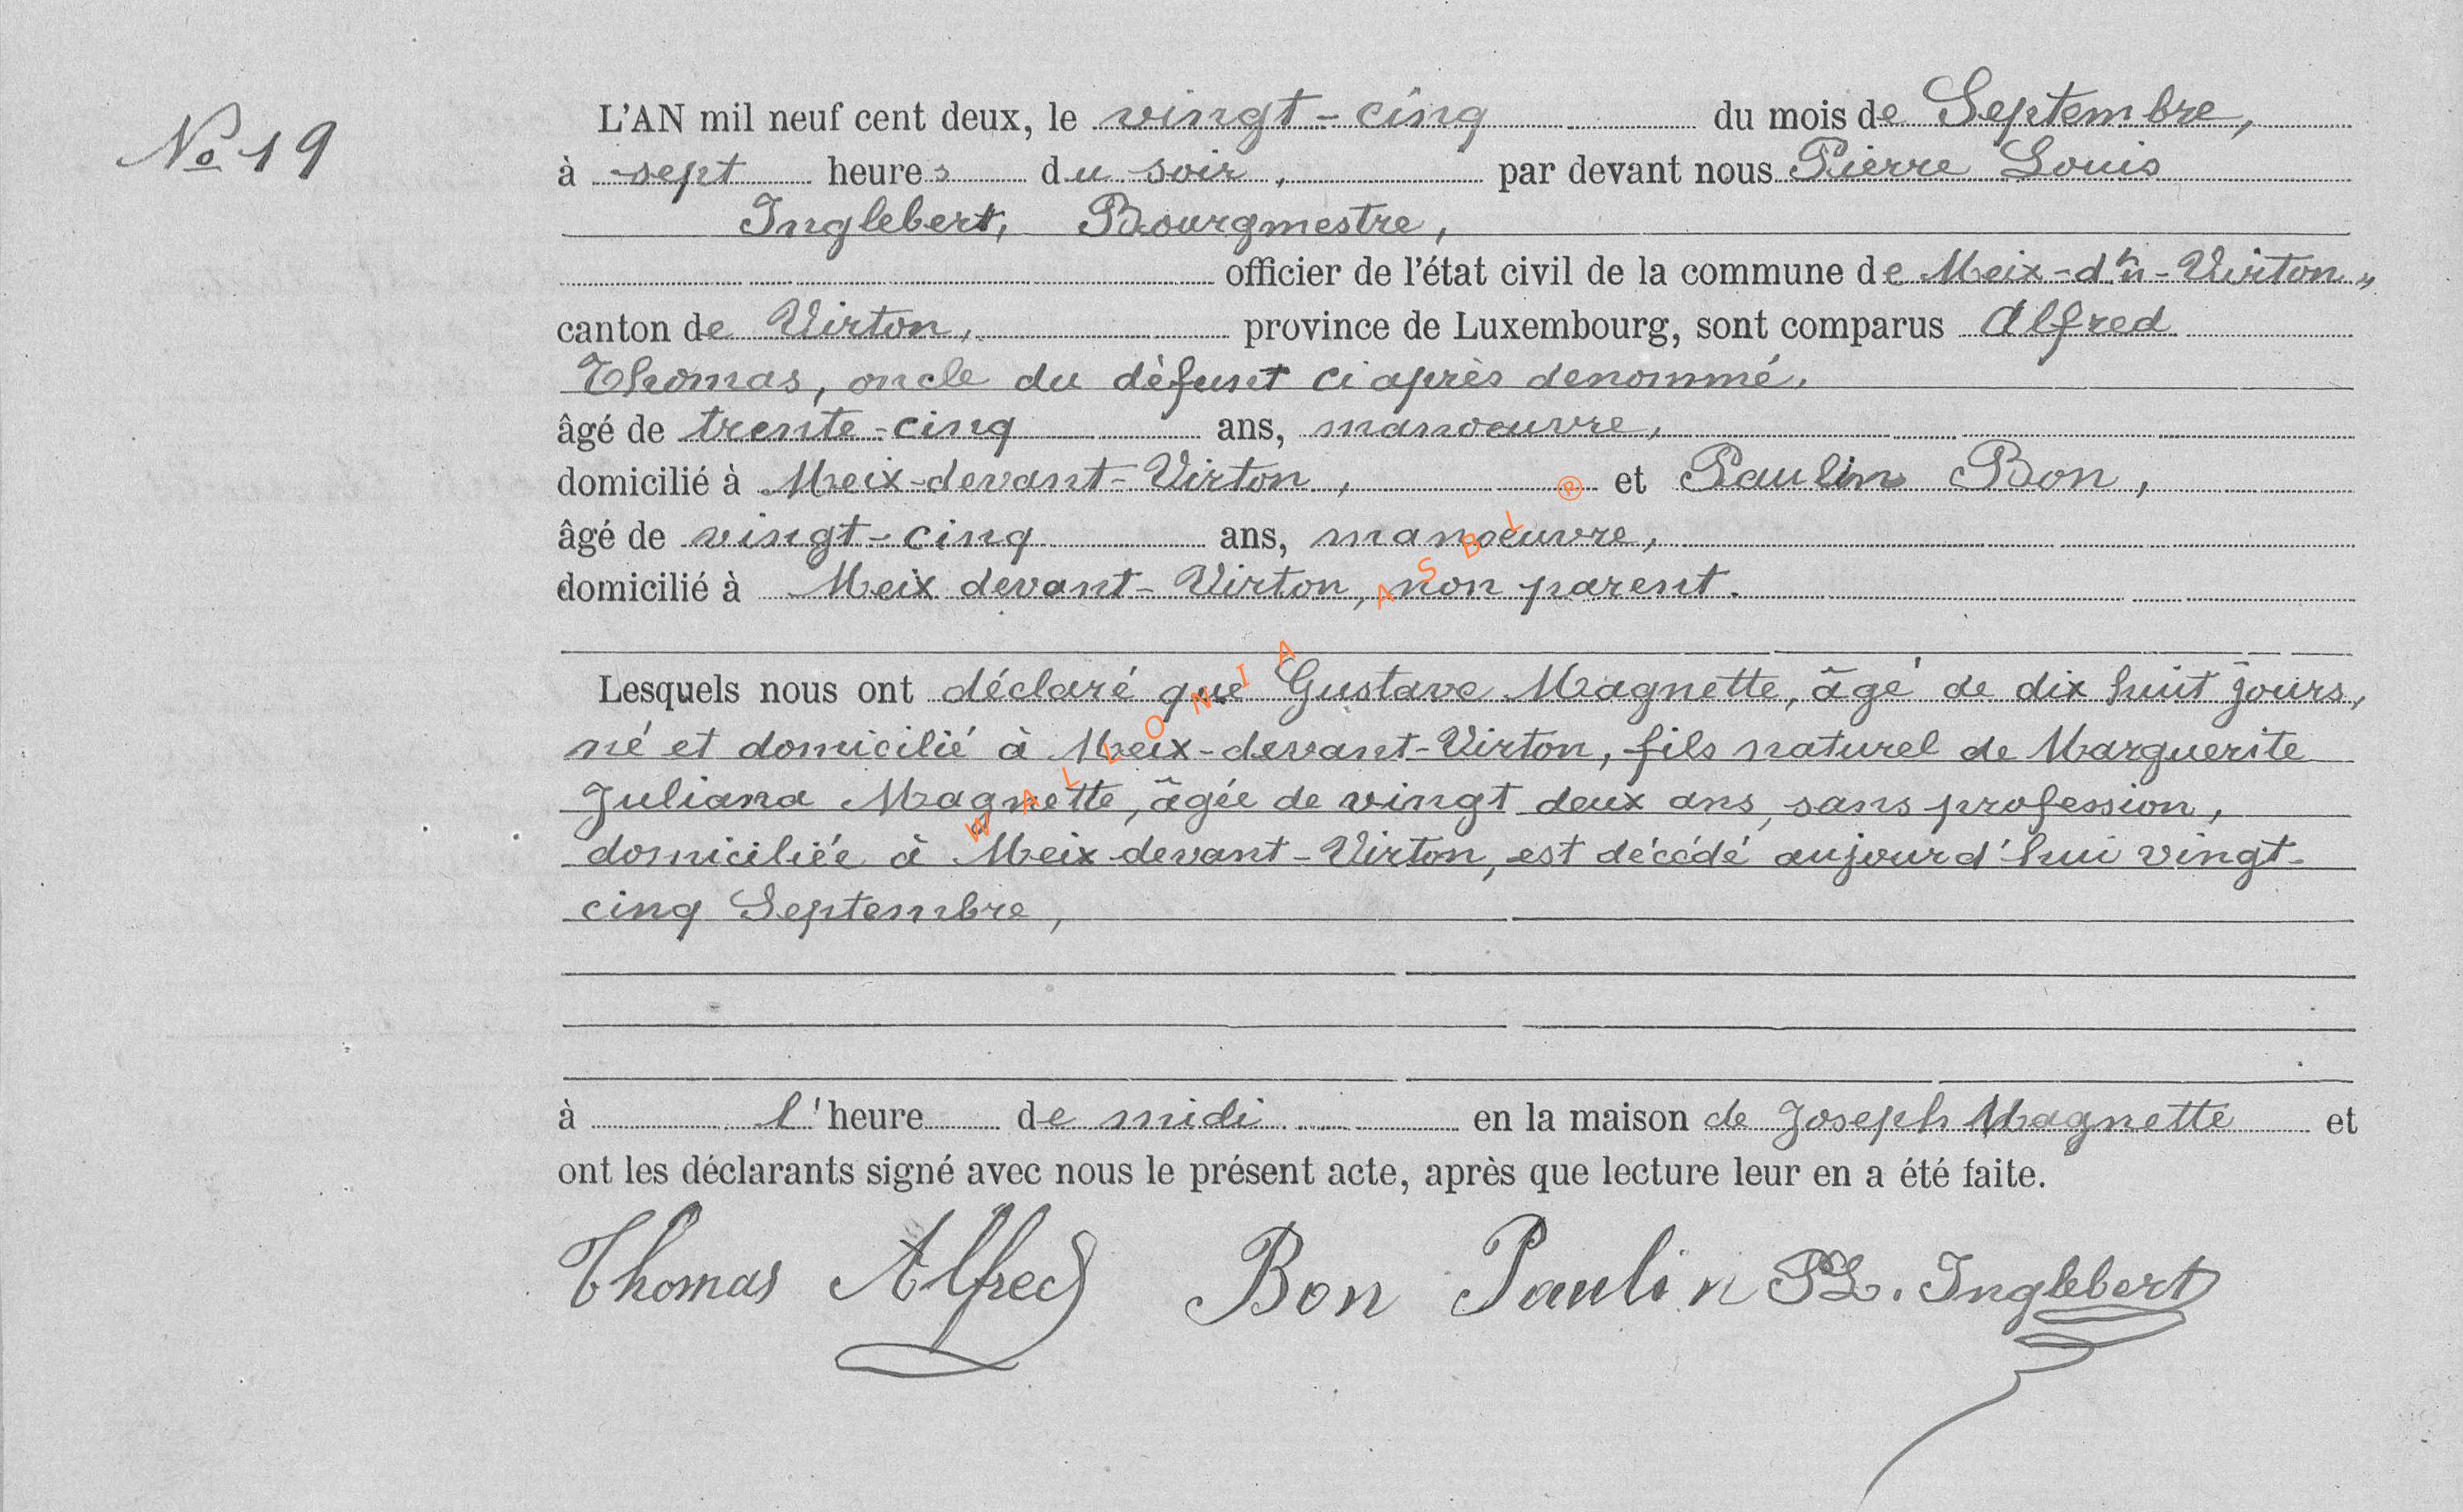 No 19
L'AN mil neuf cent deux, le vingt-cinq du mois de Septembre,
à sept heures du soir, par devant nous Pierre Louis
Inglebert, Bourgmestre,
officier de l'état civil de la commune de Meix-dt-Virton,
canton de Virton, province de Luxembourg, sont comparus Alfred
Thomas, oncle du défunt ci après denommé,
âgé de trente-cinq ans, manoeuvre,
domicilié à Meix-devant-Virton, et Paulin Bon,
âgé de vingt-cinq ans, manoeuvre,
domicilié à Meix devant-Virton, non parent.
Lesquels nous ont déclaré que Gustave Magnette, âgé de dix huit jours,
né et domicilié à Meix-devant-Virton, fils naturel de Marguerite
Juliana Magnette, âgée de vingt deux ans, sans profession,
domiciliée à Meix devant-Virton, est décédé aujourd'hui vingt-
cinq Septembre,
à l'heure de midi en la maison de Joseph Magnette et
ont les déclarants signé avec nous le présent acte, après que lecture leur en a été faite.
Thomas Alfred Bon Paulin PL. Inglebert
WALLONIA ASBL ®